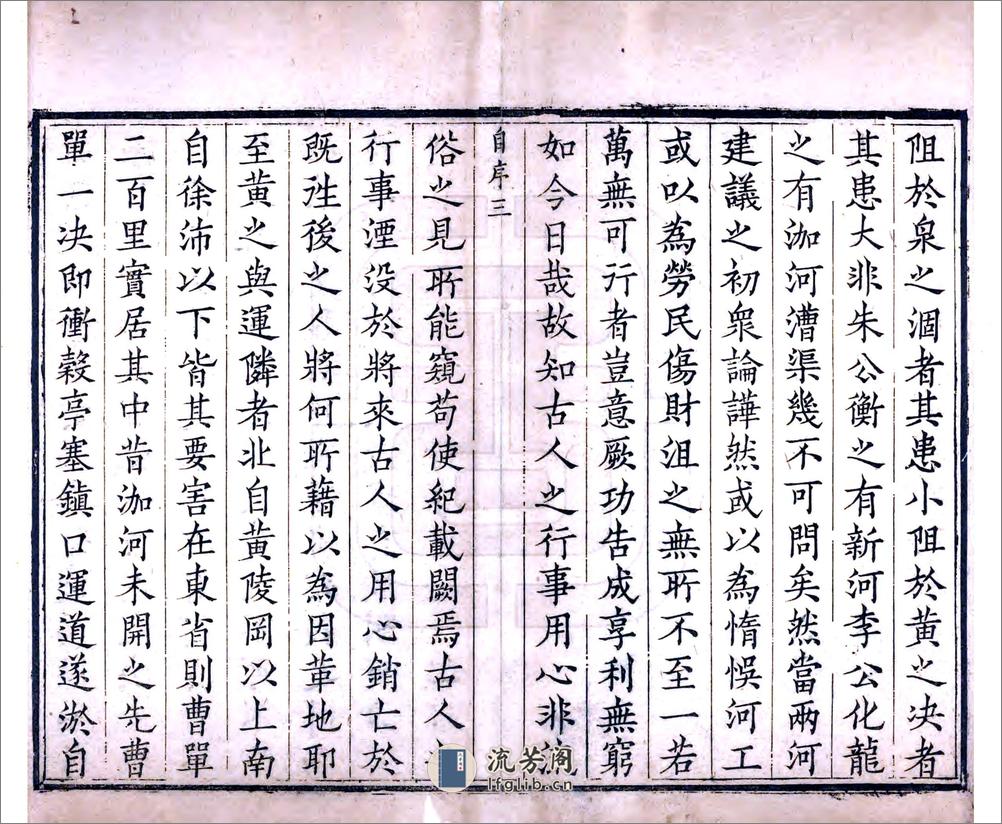 阻於泉之涸者其患小阻於黄之决者
其患大非朱公衡之有新河李公化龍
之有泇河漕渠幾不可問矣然當兩河
建議之初衆論譁然或以為惰悞河工
或以為勞民傷財沮之無所不至一若
萬無可行者豈意厥功告成享利無窮
如今日哉故知古人之行事用心非
自序三
俗之見所能窺苟使紀載闕焉古人
行事湮没於將來古人之用心銷亡於
既徃後之人將何所藉以為因革地耶
至黄之與運隣者北自黄陵岡以上南
自徐沛以下皆其要害在東省則曹單
二百里實居其中昔泇河未開之先曹
單一决即衝穀亭塞鎮口運道遂淤自
流芳阁
lfglib.cn